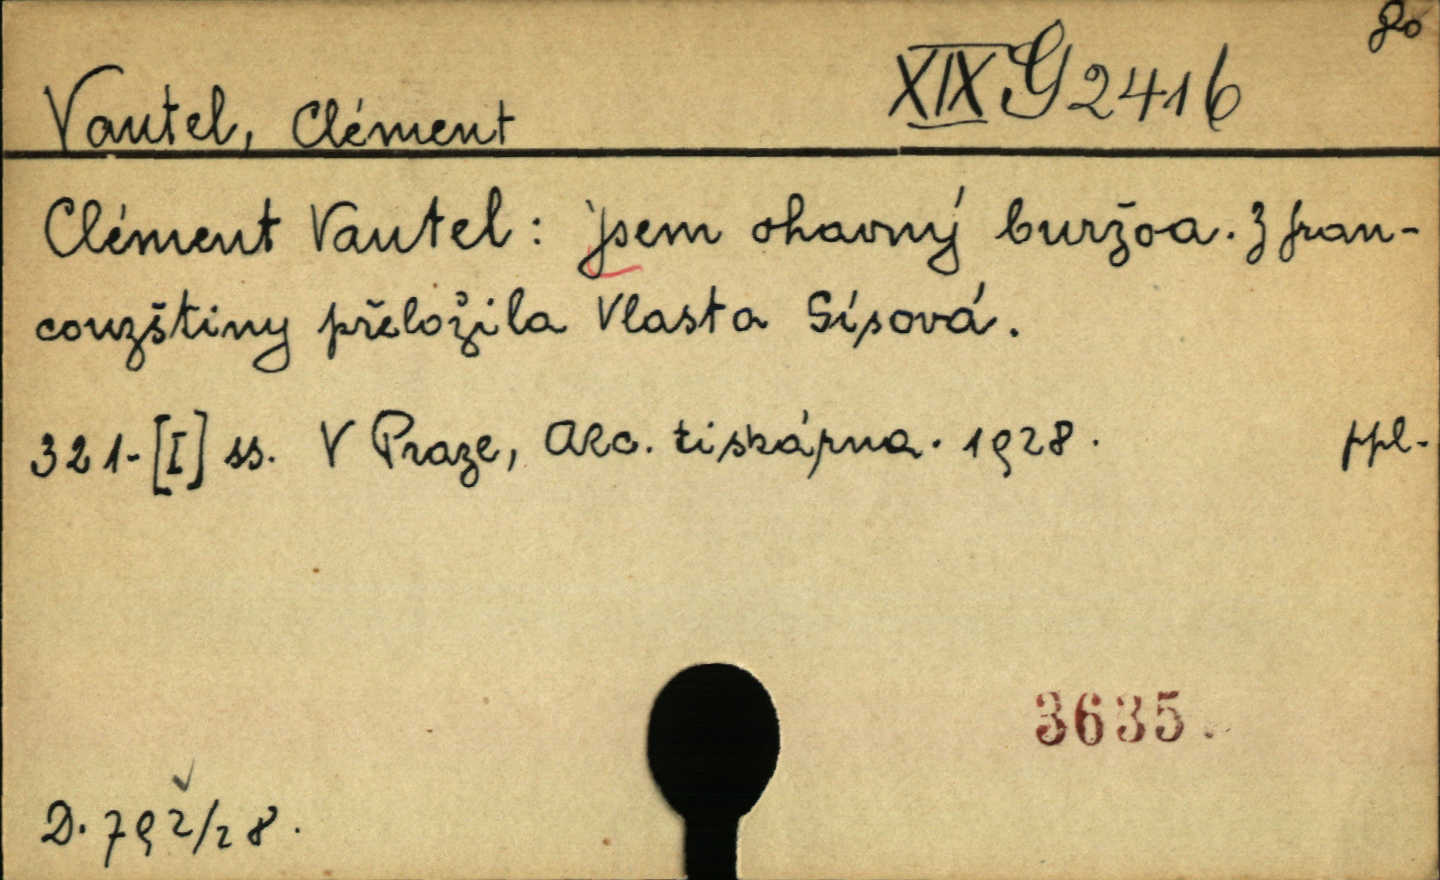 8o
XIX G 2416
Vautel, Clément
Clément Vautel: jsem ohavný buržoa. Z fran-
couzštiny přeložila Vlasta Sísová.
321-[I] ss. V Praze, Akc. tiskárna. 1928. ppl.
3635
D. 792/28.